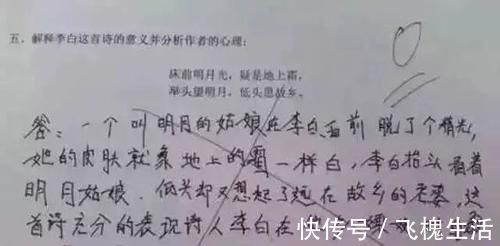 五、解释李白这首诗的意义并分析作者的心理:
0
床前明月光,疑是地上霜,
举头望明月,低头思故乡。
答:一个叫明月的姑娘在李白面前脱了个精光,
她的皮肤就象地上的霜一样白,李白抬头看着
明月姑娘,低头却又想起了远在故乡的老婆,这
首诗充分的表现诗人李白在
快传号/飞槐生活